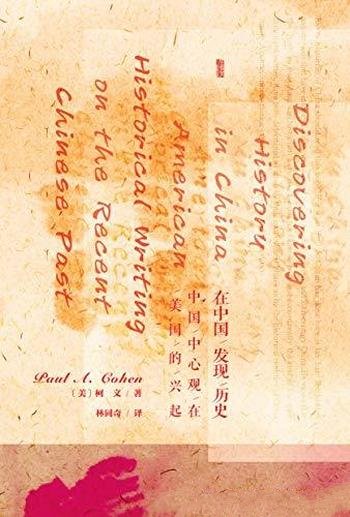 Discovering
History
in China
American
Historical Writing
on the Recent
Chinese Past
在中国/发现/历史
中国/中心观/在
美国/的/兴起
Paul A. Cohen
〔美〕柯 文/著
林同奇/译